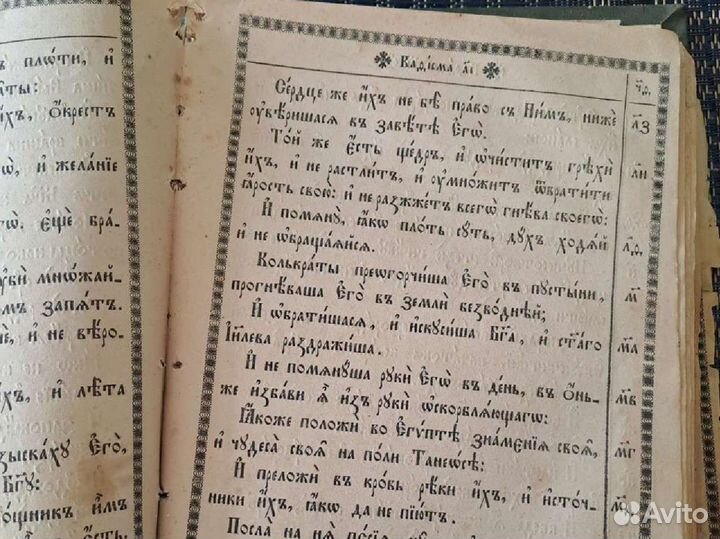 ъ плоти, и
аты:
ихъ, ѡкрестъ
ѡ, и желанїе
гѡ. Еще бра,
ꙋби мнѡжай,
омъ запѧтъ.
е, и не вѣро,
хъ, и лѣта
зыскахꙋ Егѡ,
Бг҃ꙋ:
ощникъ имъ
Каѳїсма а҃і
Ч҃р,
Сердце же ихъ не бѣ право съ Нимъ, ниже
ꙋвѣришасѧ въ завѣтѣ Егѡ. л҃з
Той же есть щедръ, и ѡчиститъ грѣхи
ихъ, и не растлитъ, и ꙋмножитъ ѿвратити л҃и
ꙗрость свою: и не разжжетъ всегѡ гнѣва своегѡ:
И помѧнꙋ, ꙗкѡ плоть сꙋть, дꙋхъ ходѧй л҃ѳ,
и не ѡбращаѧйсѧ.
Колькраты преѡгорчиша Его въ пꙋстыни, м҃
прогнѣваша Его въ земли безводнѣй;
И ѡбратишасѧ, и искꙋсиша Бг҃а, и ст҃аго м҃а
Іи҃лева раздражиша.
И не помѧнꙋша рꙋки Егѡ въ день, въ ѡнь- м҃в
же избави ѧ изъ рꙋки ѡскорблѧющагѡ:
Ꙗкоже положи во Егѵптѣ знаменїѧ своѧ, м҃г
и чꙋдеса своѧ на поли Танеѡсѣ:
И преложи въ кровь рѣки ихъ, и источ,
ники ихъ, ꙗкѡ да не пїютъ.
Посла на нѧ пєсїѧ
Avito